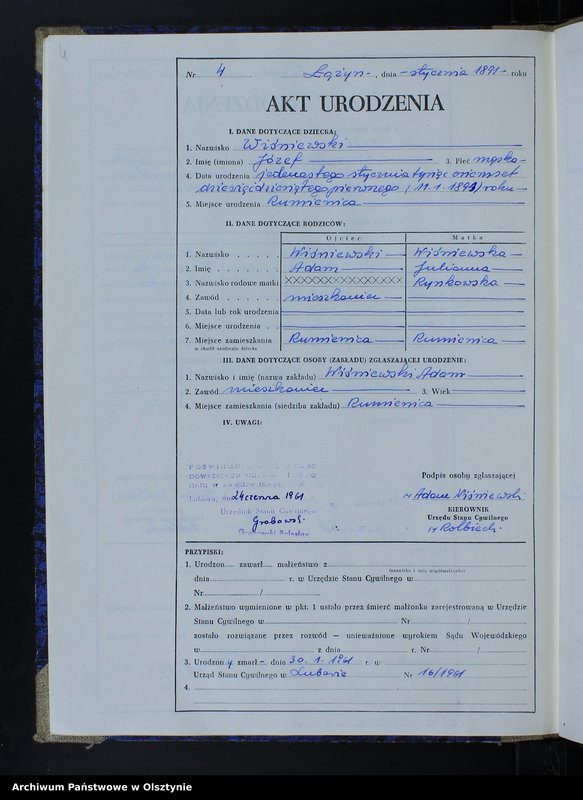 4
Nr 4 Łążyn - , dnia - stycznia 1891 - roku
AKT URODZENIA
I. DANE DOTYCZĄCE DZIECKA:
1. Nazwisko Wiśniewski
2. Imię (imiona) Józef 3. Płeć męska
4. Data urodzenia jedenastego stycznia tysiąc osiemset
dziewięćdziesiątego pierwszego (11.1.1891) roku
5. Miejsce urodzenia Rumienica
II. DANE DOTYCZĄCE RODZICÓW:
Ojciec Matka
1. Nazwisko Wiśniewski Wiśniewska
2. Imię Adam Julianna
3. Nazwisko rodowe matki XXXXXXXXXXXXX Rynkowska
4. Zawód mieszkaniec
5. Data lub rok urodzenia
6. Miejsce urodzenia
7. Miejsce zamieszkania Rumienica Rumienica
w chwili urodzenia dziecka
III. DANE DOTYCZĄCE OSOBY (ZAKŁADU) ZGŁASZAJĄCEJ URODZENIE:
1. Nazwisko i imię (nazwa zakładu) Wiśniewski Adam
2. Zawód mieszkaniec 3. Wiek
4. Miejsce zamieszkania (siedziba zakładu) Rumienica
IV. UWAGI:
Lubawa, dn. 24 czerwca 1961
Urzędnik Stanu Cywilnego
Grabowski
Grabowski Bolesław
Podpis osoby zgłaszającej
Adam Wiśniewski
KIEROWNIK
Urzędu Stanu Cywilnego
PRZYPISKI:
1. Urodzon zawarł małżeństwo z
(nazwisko i imię współmałżonka)
dnia r. w Urzędzie Stanu Cywilnego w
Nr /
2. Małżeństwo wymienione w pkt. 1 ustało przez śmierć małżonka zarejestrowaną w Urzędzie
Stanu Cywilnego w Nr /
zostało rozwiązane przez rozwód — unieważnione wyrokiem Sądu Wojewódzkiego
w z dnia r. Nr /
3. Urodzon y zmarł - dnia 30.1.1961 r. w
Urząd Stanu Cywilnego w Lubawie Nr 16/1961
4.
Archiwum Państwowe w Olsztynie